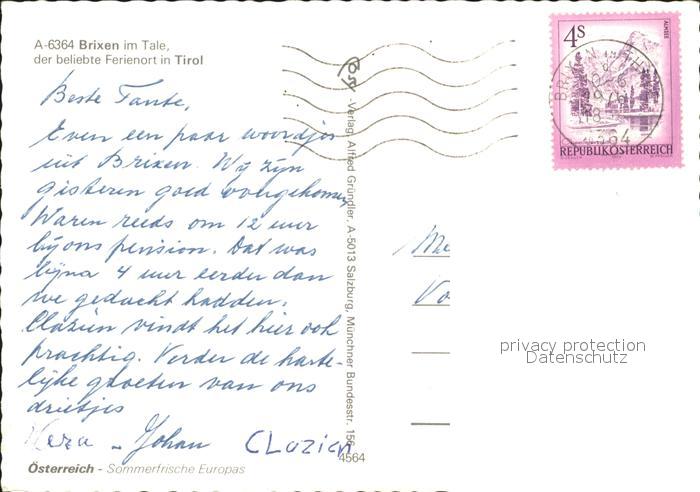 A-6364 Brixen im Tale,
der beliebte Ferienort in Tirol
Beste Tante,
Even een paar woordjes
uit Brixen. Wij zijn
gisteren goed overgekomen
Waren reeds om 12 uur
bij ons pension. Dat was
bijna 4 uur eerder dan
we gedacht hadden.
Clazien vindt het hier ook
prachtig. Verder de harte-
lijke groeten van ons
drietjes
- Johan CLazien
Österreich - Sommerfrische Europas
Verlag Alfred Gründler, A-5013 Salzburg, Münchner Bundesstr. 156
4564
4S
ALMSEE
REPUBLIK ÖSTERREICH
BRIXEN IM TH
6364
Me
Vo
privacy protection
Datenschutz